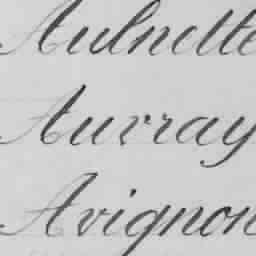 Aulnette
Auvray
Avignon